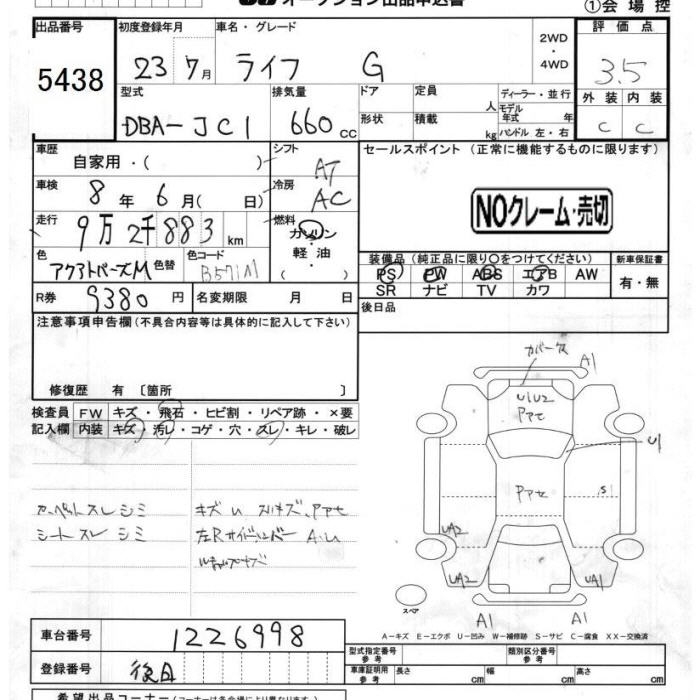 オークション出品申込書 ①会場控
出品番号 初度登録年月 車名・グレード 評価点
5438 23 7月 ライフ G 2WD・4WD 3.5
型式 排気量 ドア 定員 人 ディーラー・並行 外装 内装
DBA-JC1 660cc 形状 積載 kg モデル年式 年 ハンドル 左・右 C C
車歴 シフト セールスポイント(正常に機能するものに限ります)
自家用・( ) AT
車検 8年6月( 日) 冷房 AC
NOクレーム・売切
走行 9万2千883km 燃料 ガソリン・軽油・( )
装備品(純正品に限り○をつけてください) 新車保証書
色 色替 色コード B571M PS PW ABS エアB AW 有・無
SR ナビ TV カワ
R券 9380円 名変期限 月 日 後日品
注意事項申告欄(不具合内容等は具体的に記入して下さい)
修復歴 有〔箇所 〕
検査員 FW キズ・飛石・ヒビ割・リペア跡・×要
記入欄 内装 キズ・汚レ・コゲ・穴・スレ・キレ・破レ
カーペットスレ シミ
シート スレ シミ
A1
U1U2
U1
S
UA2
UA2 UA1
スペア A1 A1
A-キズ E-エクボ U-凹み W-補修跡 S-サビ C-腐食 XX-交換済
車台番号 1226998
型式指定番号 参考 類別区分番号 参考
登録番号 後日 車庫証明用 参考 長さ cm 幅 cm 高さ cm
希望出品コーナー(コーナーは各会場により異なります)